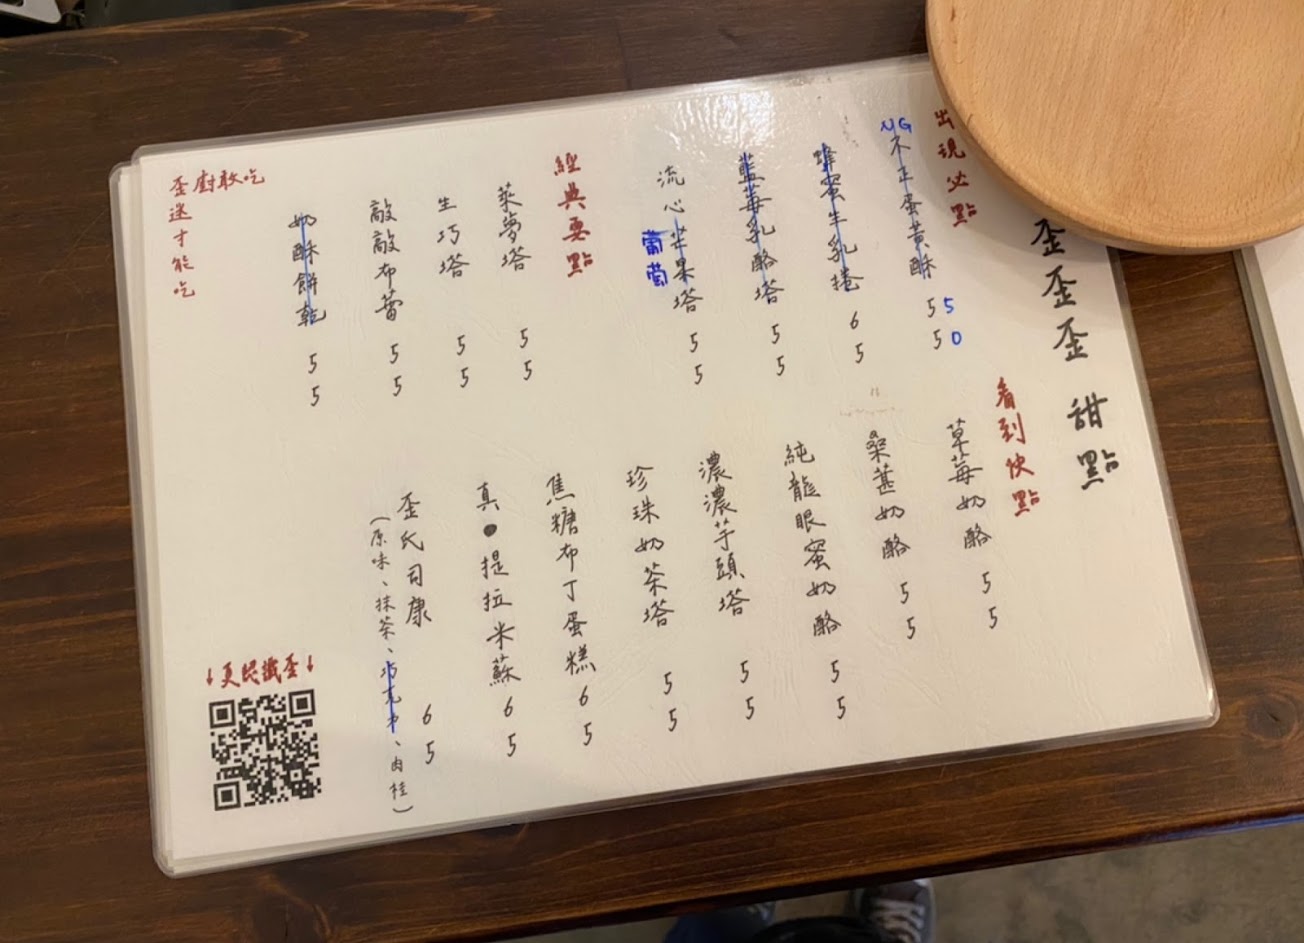 歪歪歪 甜點
出現必點
NG
不正蛋黃酥 55
50
蜂蜜生乳捲 65
藍莓乳酪塔 55
流心芒果塔 55
葡萄
經典要點
萊夢塔 55
生巧塔 55
敵敵布蕾 55
奶酥餅乾 55
歪廚敢吃
歪迷才能吃
看到快點
草莓奶酪 55
桑葚奶酪 55
純龍眼蜜奶酪 55
濃濃芋頭塔 55
珍珠奶茶塔 55
焦糖布丁蛋糕 65
真●提拉米蘇 65
歪氏司康 65
(原味、抹茶、巧克力、肉桂)